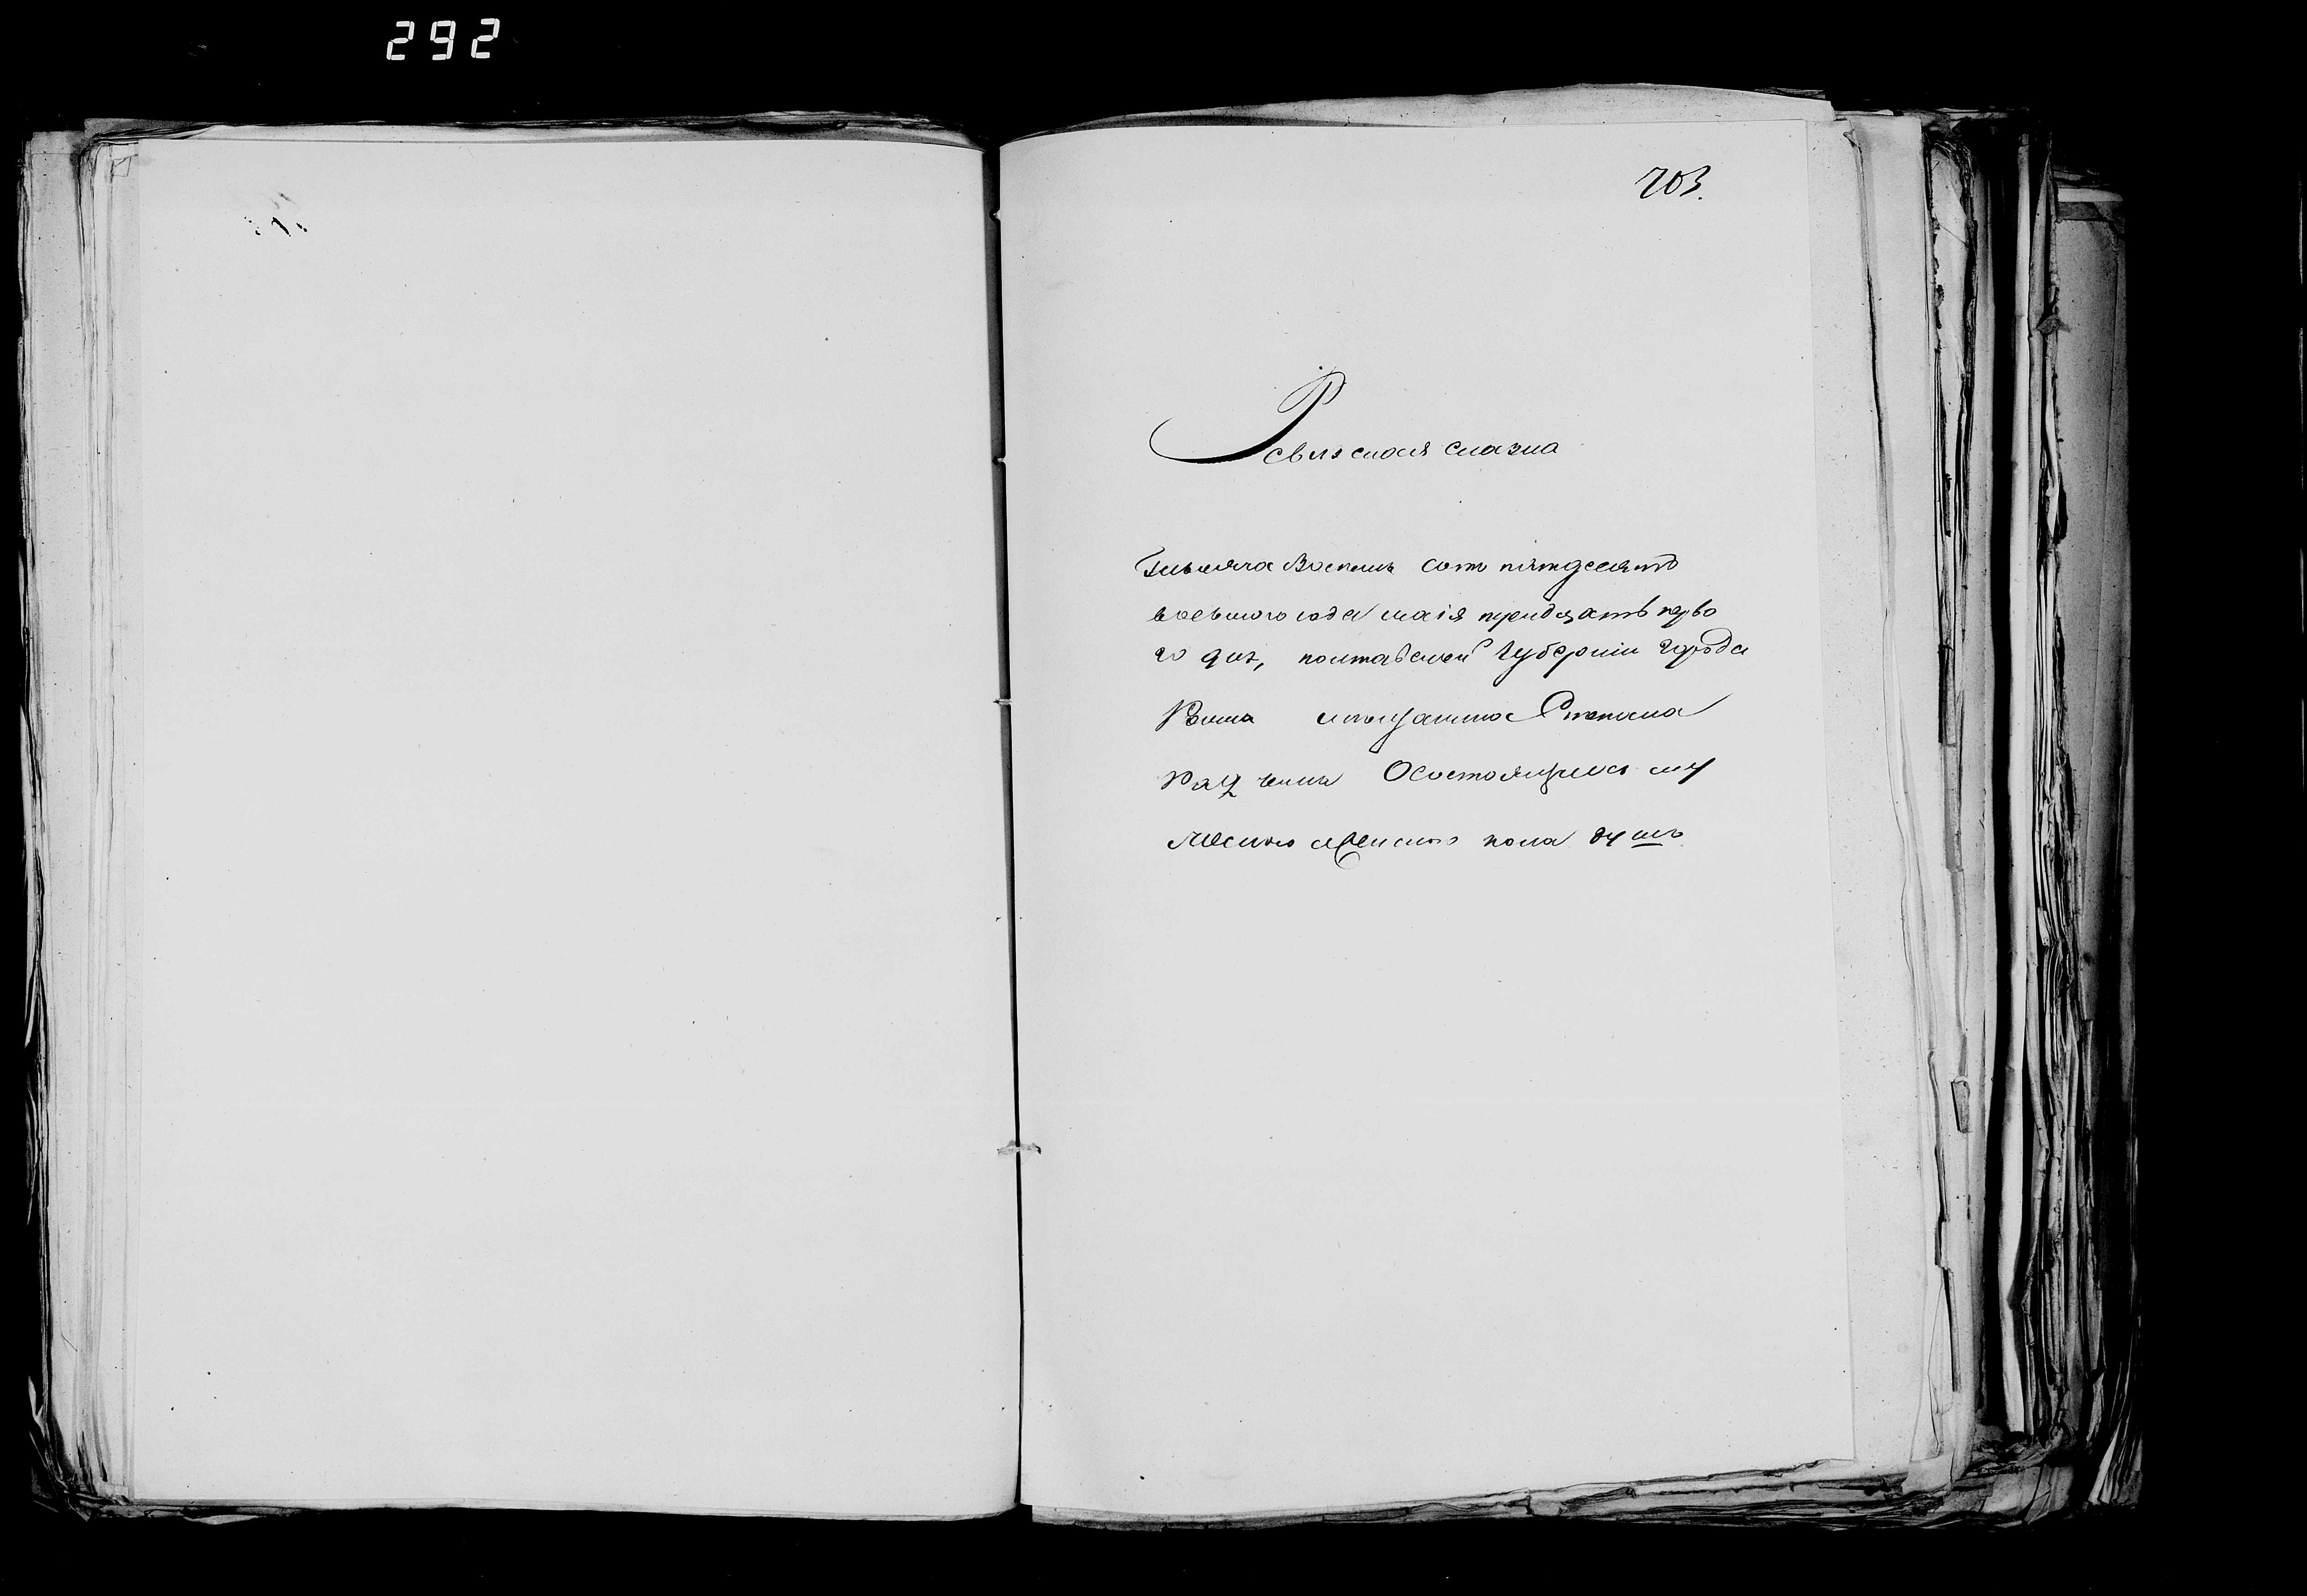 292
703.
Ревизская сказка
Тысяча Восемь сот пятдесятъ
восьмого года маія тридцать перво
го дня, полтавской Губерніи города
Ромна мещанина Степана
Осостоящихъ му
жеска женска пола душъ